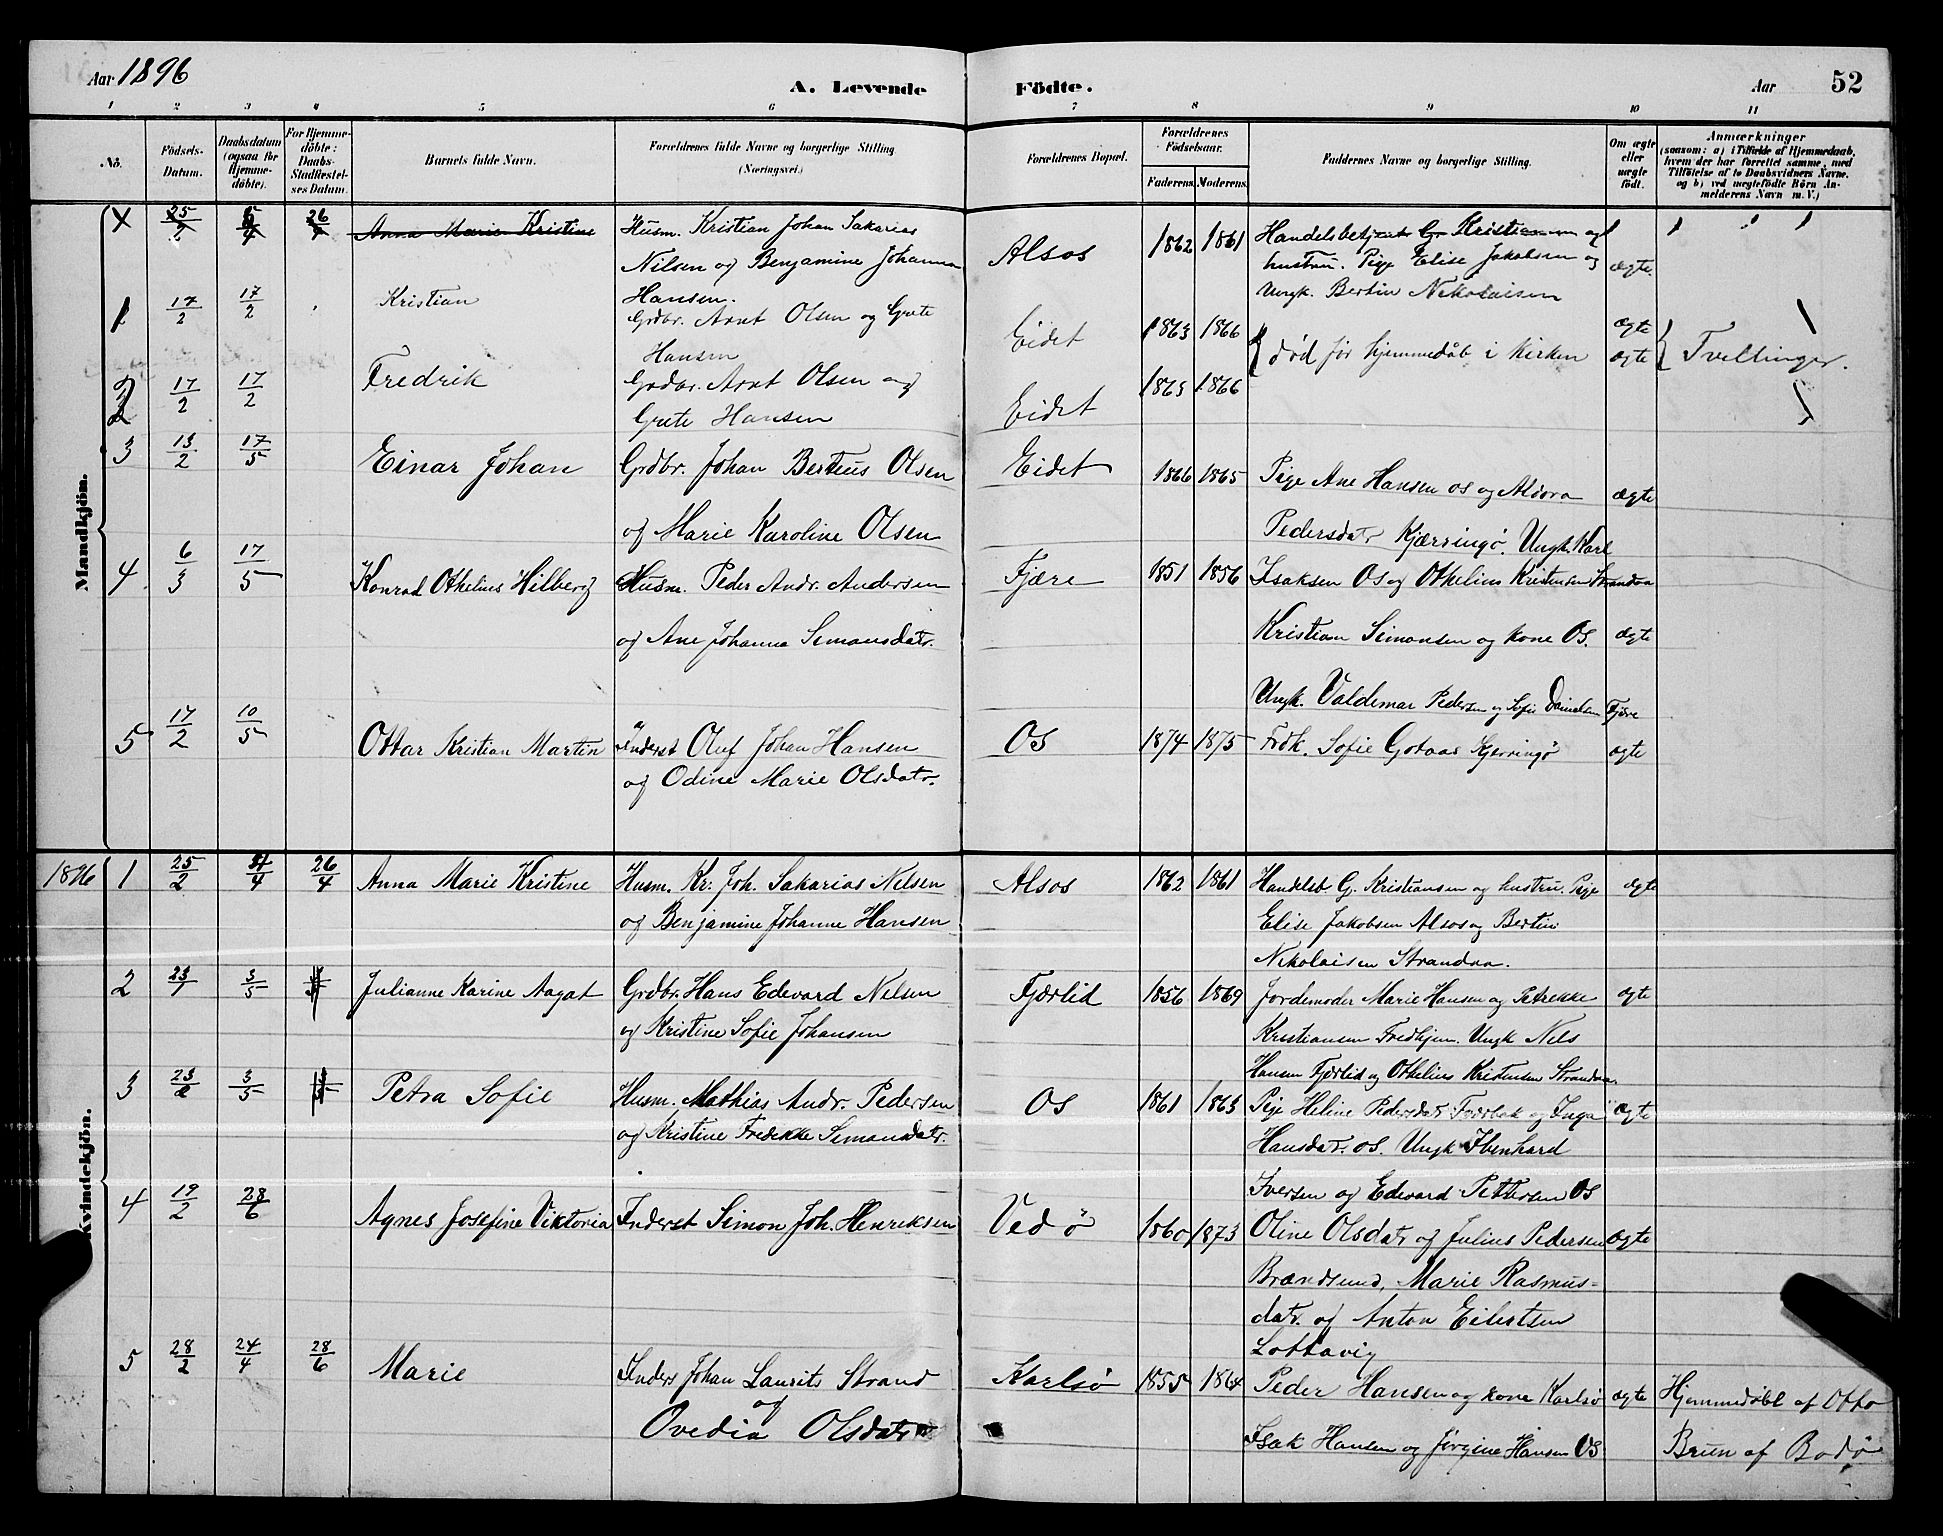 Aar 1896
A. Levende
Födte.
Aar
52
1 2 3 4 5 6 7 8 9 10 11
No.
Födsels-Datum.
Daabsdatum (ogsaa for Hjemme-döbte).
For Hjemme-döbte: Daabs-Stadfæstel-ses Datum.
Barnets fulde Navn.
Forældrenes fulde Navne og borgerlige Stilling (Næringsvei.)
Forældrenes Bopæl.
Forældrenes Födselsaar.
Faderens. Moderens.
Faddernes Navne og borgerlige Stilling.
Om ægte eller uægte födt.
Anmærkninger
(saasom: a) i Tilfælde af Hjemmedaab, hvem der har forrettet samme, med Tilföielse af to Daabsvidners Navne. og b) ved uægtefödte Börn An-melderens Navn m. V.)
Mandkjön.
25/2 26/4 Anna Marie Kristine Husm. Kristian Johan Sakarias Alsos 1862 1861 Handelsbetjent G. Kristiansen og
Nilsen og Benjamine Johanna hustru. Pige Elise Jakobsen og ægte
Hansen. Ungk. Bertin Nikolaisen
1 17/2 17/2 Kristian Grdbr. Arnt Olsen og Grete Eidet 1863 1866 ægte
Hansen død før hjemmedåb i Kirken ægte Tvillinger.
2 17/2 17/2 Fredrik Grdbr. Arnt Olsen og Eidet 1863 1866
Grete Hansen
3 13/2 17/5 Einar Johan Grdbr. Johan Berteus Olsen Eidet 1866 1865 Pige Ane Hansen Os og Aldora ægte
og Marie Karoline Olsen Pedersdatr Kjærringø. Ungk. Karl
4 6/3 17/5 Konrad Othelius Hilberg Husm. Peder Andr. Andersen Fjære 1851 1856 Isaksen Os og Othelius Kristensen Strandaa
og Ane Johanna Simonsdatr. Kristian Simonsen og kone Os. ægte
Ungk. Valdemar Pedersen og Sofie Danielsen Fjære
5 17/2 10/5 Ottar Kristian Martin Inderst Oluf Johan Hansen Os 1874 1875 Frdk. Sofie Gotaas Kjerringø ægte
og Odine Marie Olsdatr.
Kvindekjön.
1896 1 25/2 26/4 Anna Marie Kristine Husm. Kr. Joh. Sakarias Nelsen Alsos 1862 1861 Handelsb. G. Kristiansen og hustru. Pige ægte
og Benjamine Johanne Hansen Elise Jakobsen Alsos og Bertin
Nikolaisen Strandaa.
2 23/1 3/5 Julianne Karine Aagat Grdbr. Hans Edevard Nelsen Fjærlid 1856 1869 Jordemoder Marie Hansen og Petrekke ægte
og Kristine Sofie Johansen Kristiansen Fredhjem. Ungk Nels
Hansen Fjærlid og Othelius Kristensen Strandaa.
3 23/2 3/5 Petra Sofie Husm. Mathias Andr. Pedersen Os 1861 1863 Pige Heline Pedersdatr og Inga ægte
og Kristine Fredrikke Simonsdatr. Hansdatr. Os. Ungk Ibenhard
Iversen og Edevard Pettersen Os
4 19/2 28/6 Agnes Josefine Viktoria Inderst Simon Joh. Henriksen Vedø 1860 1873 Oline Olsdatr og Julius Pedersen ægte
Brændsund, Marie Rasmus=
datr. og Anton Eilertsen
Lottavig
5 28/2 24/4 28/6 Marie Inders Johan Laurits Strand Karlsø 1855 1864 Peder Hansen og kone Karlsø ægte Hjemmedøbt af Otto
og
Ovedia Olsdatr Isak Hansen og Jørgine Hansen Os Bruun af Bodø